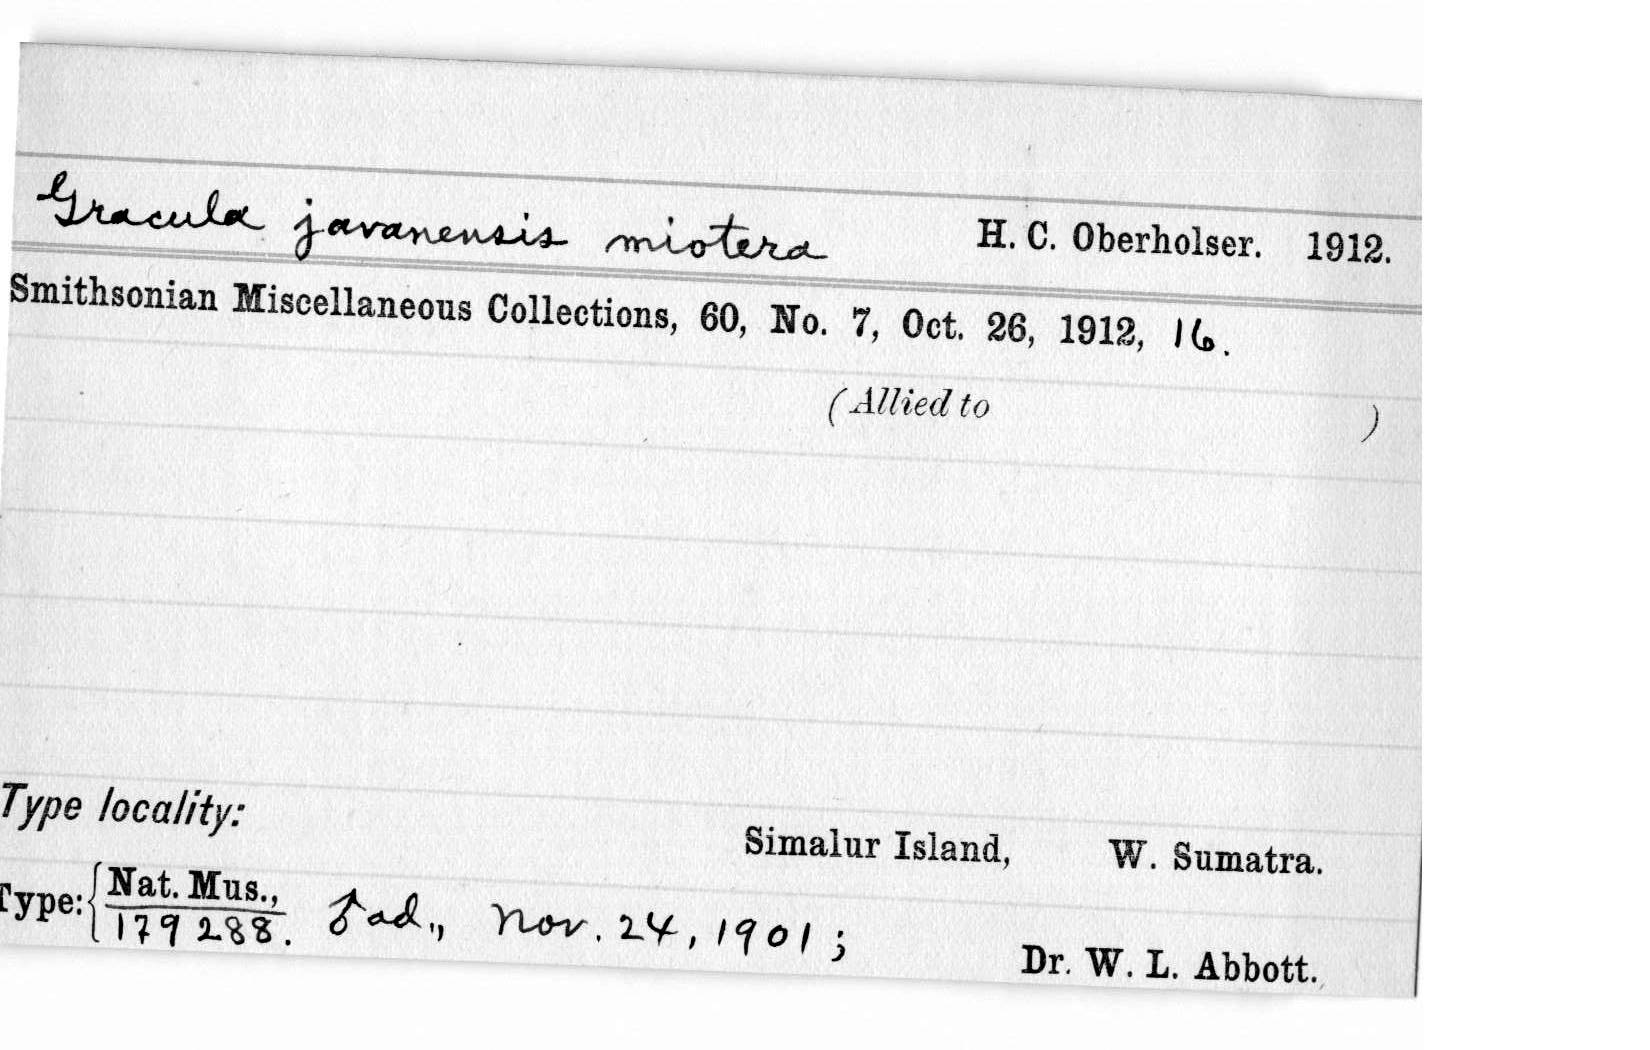 Gracula javanensis miotera H. C. Oberholser. 1912.
Smithsonian Miscellaneous Collections, 60, No. 7, Oct. 26, 1912, 16.
(Allied to )
Type locality:
Simalur Island, W. Sumatra.
Type: { Nat. Mus., 179288. ♂ ad., Nov. 24, 1901;
Dr. W. L. Abbott.